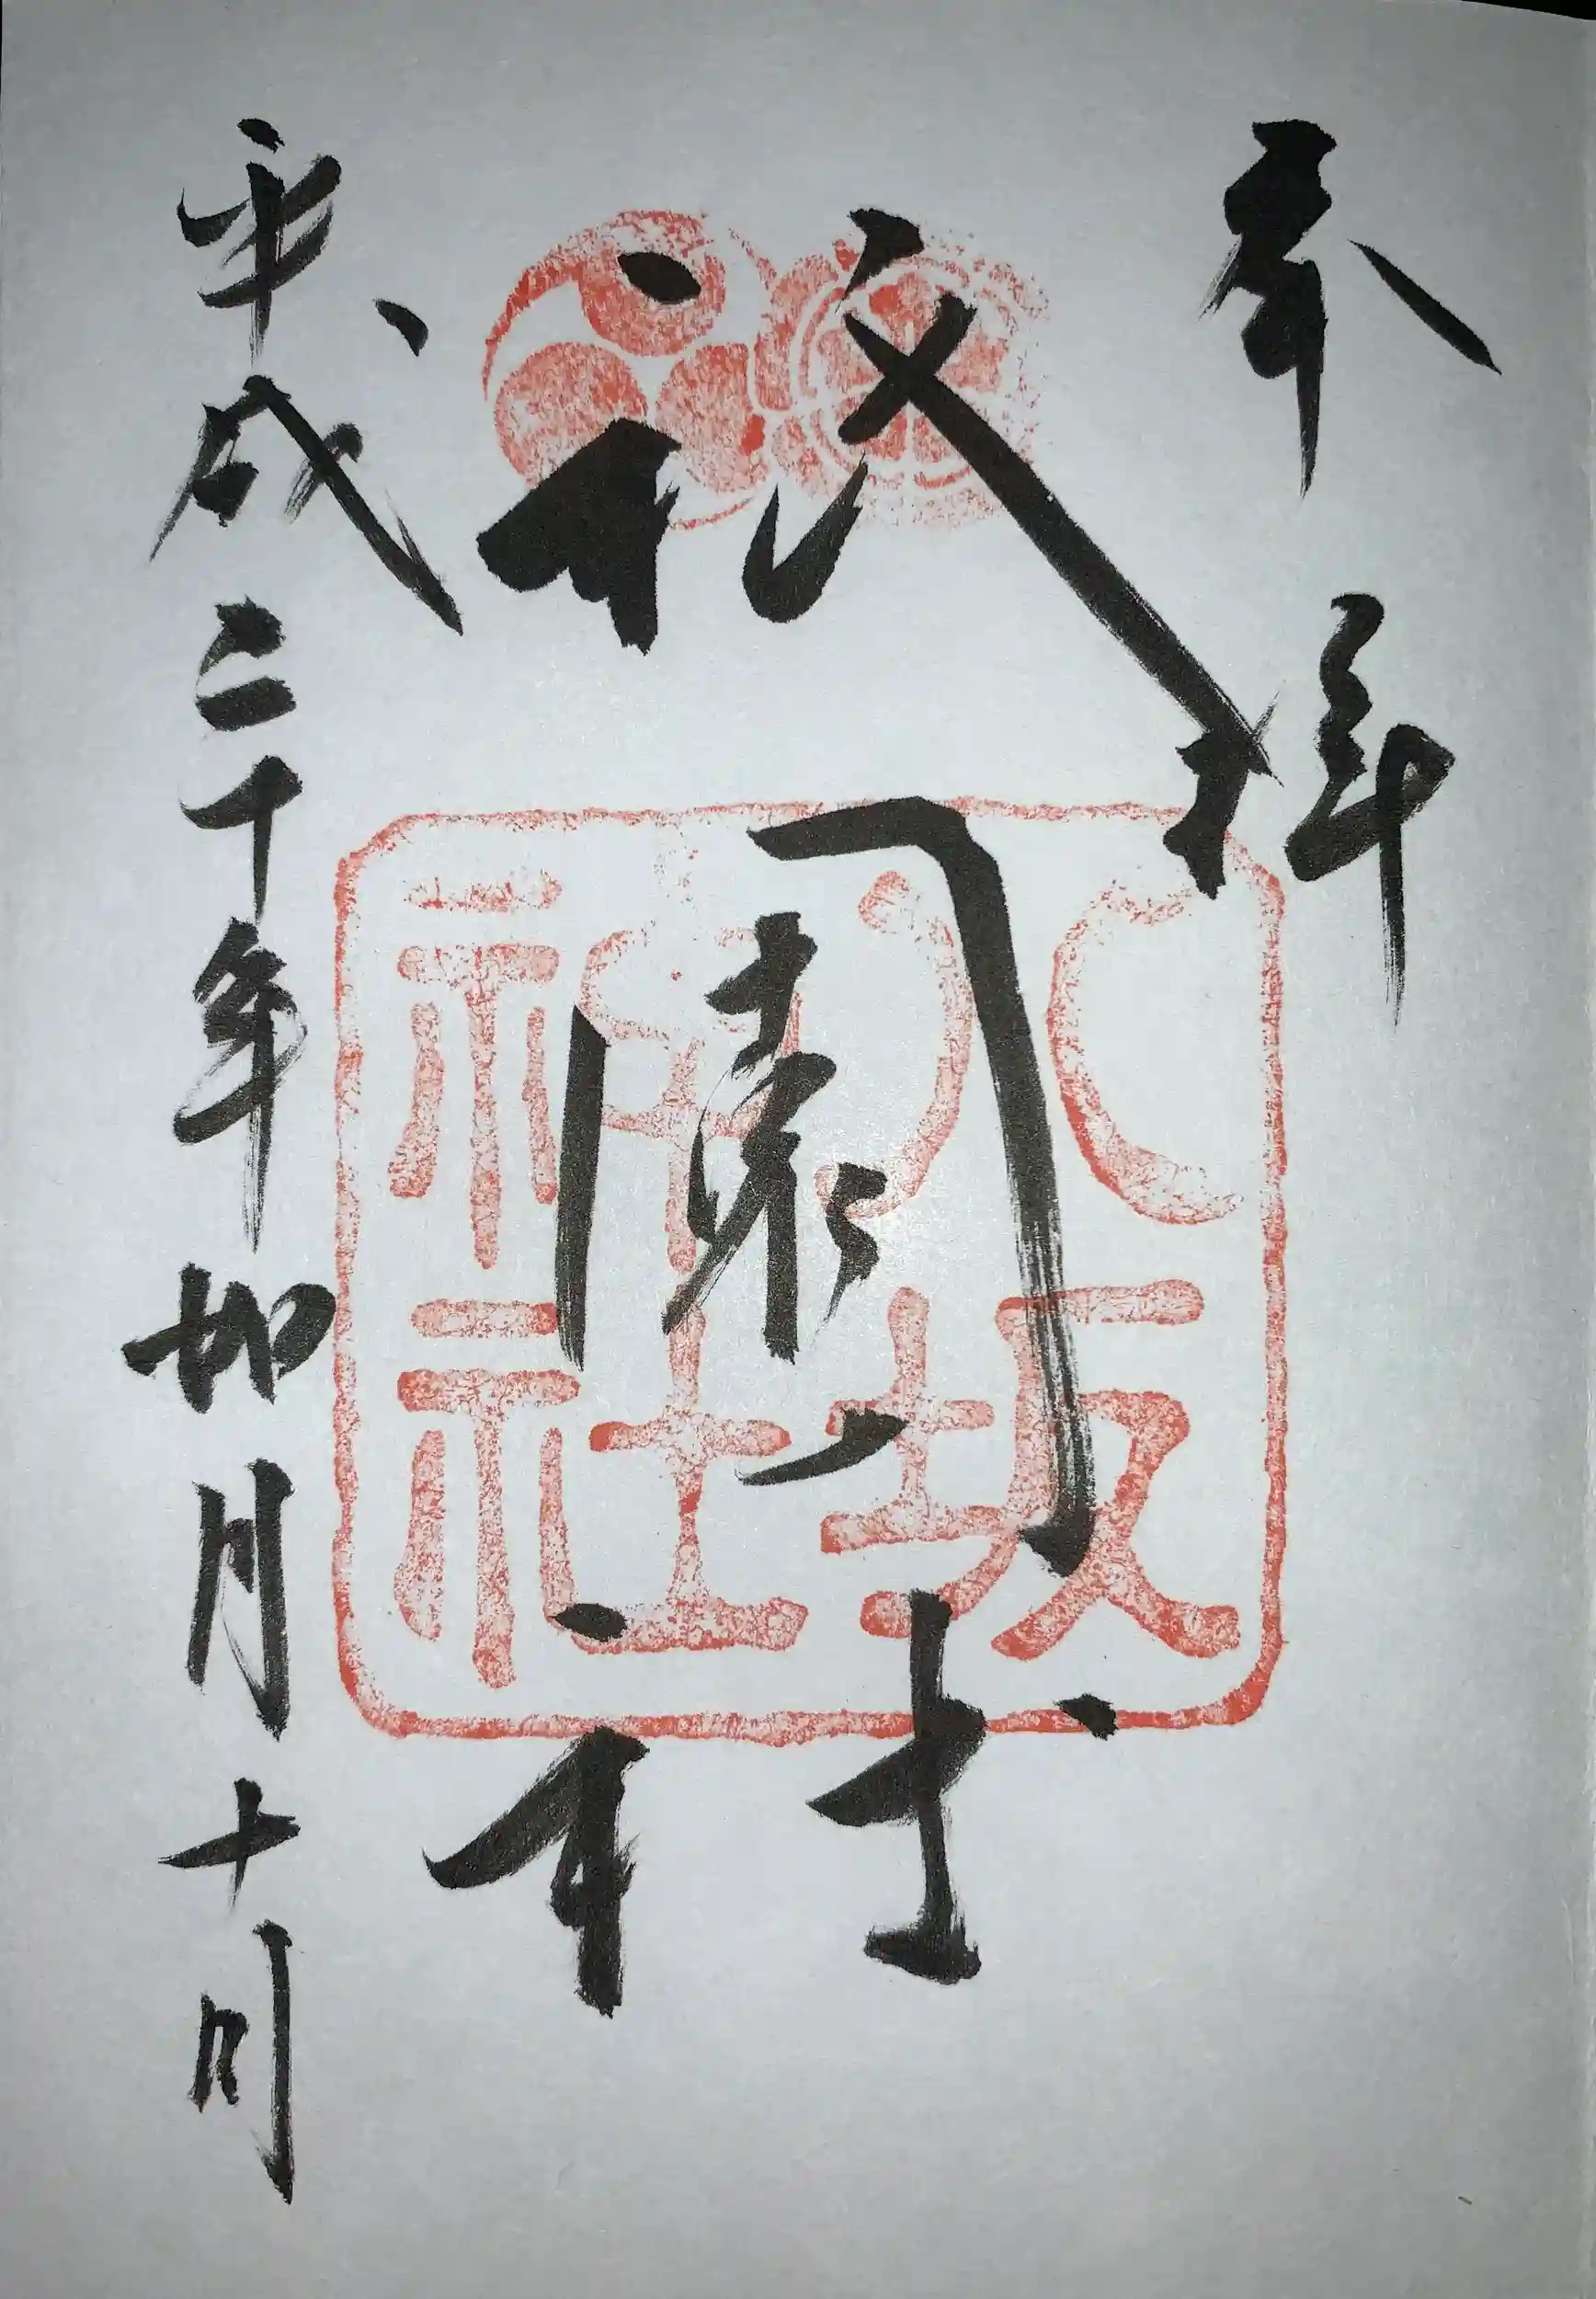 奉拝
祇園社
八坂神社
平成二十年如月十日